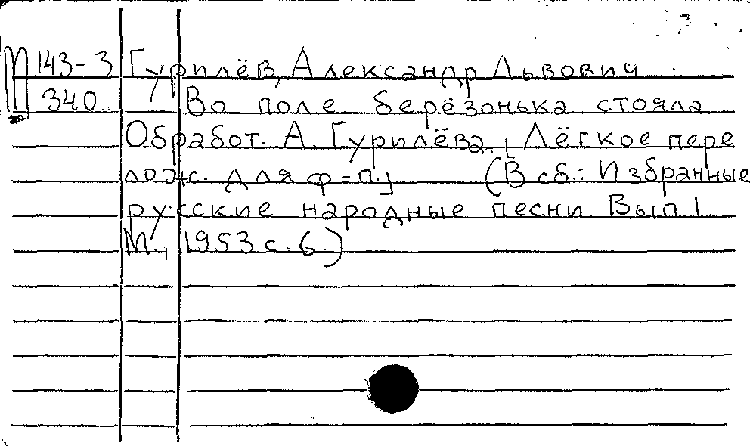 П 143-3 Гурилёв, Александр Львович
340 Во поле берёзонька стояла
Обработ. А. Гурилёва. [Лёгкое пере
лож. для ф=п.] (В сб.: Избранные
русские народные песни. Вып 1
М., 1953 с. 6)